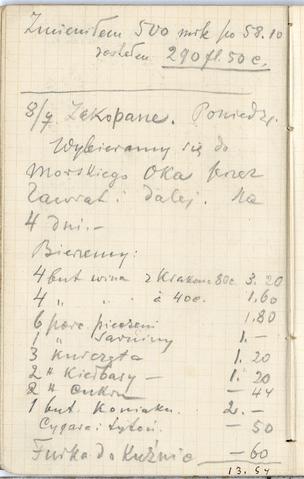 Zmieniłem 500 mrk po 58.10
dostałem 290 fl. 50 c.
8/9 Zakopane. Poniedz.
Wybieramy się do
Morskiego Oka przez
Zawrat i dalej. Na
4 dni.-
Bierzemy:
4 but wina z Krakowa 80c. 3.20
4 " " à 40c. 1.60
6 porc. pieczeni 1.80
1 " sarniny 1.-
3 kurczęta 1.20
2 " Kiełbasy - 1.20
2 " cukru - 44
1 but. Koniaku. 2.-
Cygara i tytoń. - 50
Furka do Kuźnic - 60
13.54